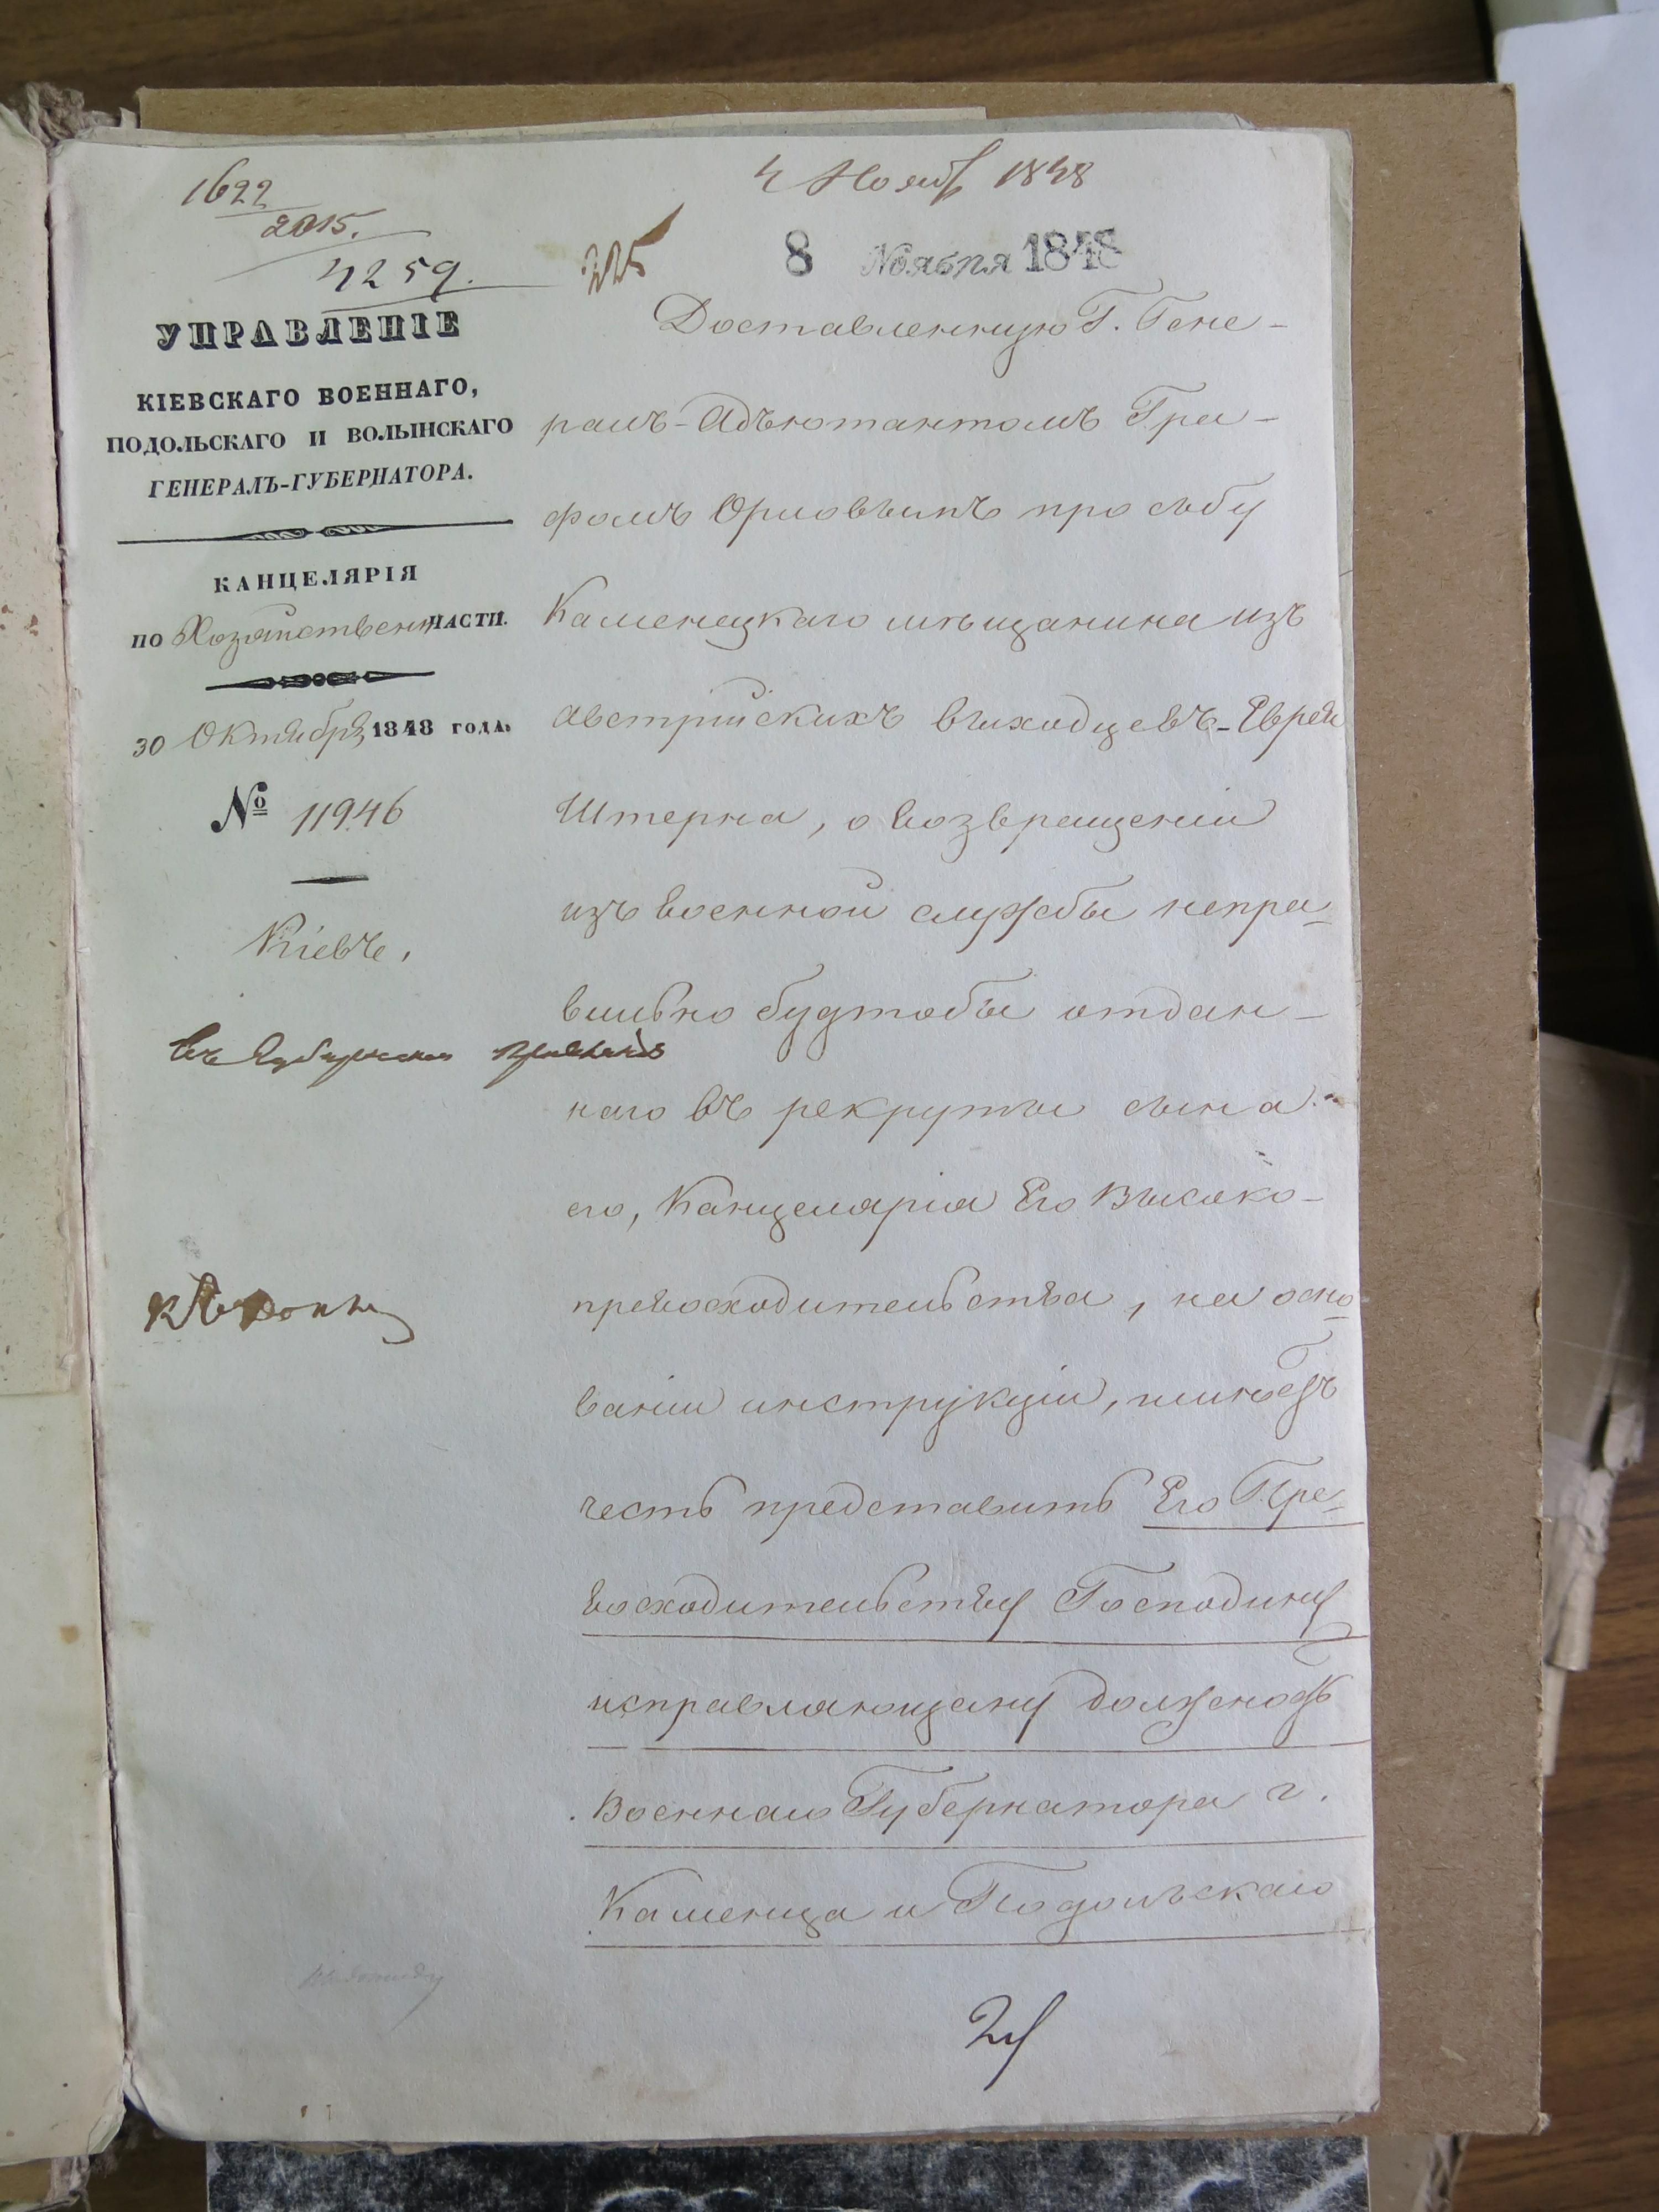 1622
2015.
4259.
4 Нояб 1848
8 Ноября 1848
УПРАВЛЕНІЕ
КІЕВСКАГО ВОЕННАГО,
ПОДОЛЬСКАГО И ВОЛЫНСКАГО
ГЕНЕРАЛЪ-ГУБЕРНАТОРА.
КАНЦЕЛЯРІЯ
ПО Хозяйственн ЧАСТИ.
30 Октября 1848 ГОДА.
№ 11946
Кіевъ,
Доставленную Г. Гене-
ралъ-Адъютантомъ Гра-
фомъ Орловымъ просьбу
Каменецкаго мѣщанина изъ
австрійскихъ выходцевъ-Еврея
Штерна, о возвращеніи
изъ военной службы непра-
вильно будтобы отдан-
наго въ рекруты сына
его, Канцелярія Его Высоко-
превосходительства, на осно-
ваніи инструкціи, имѣетъ
честь представить Его Пре-
восходительству Господину
исправляющему должность
Военнаго Губернатора г.
Каменца и Подольскаго